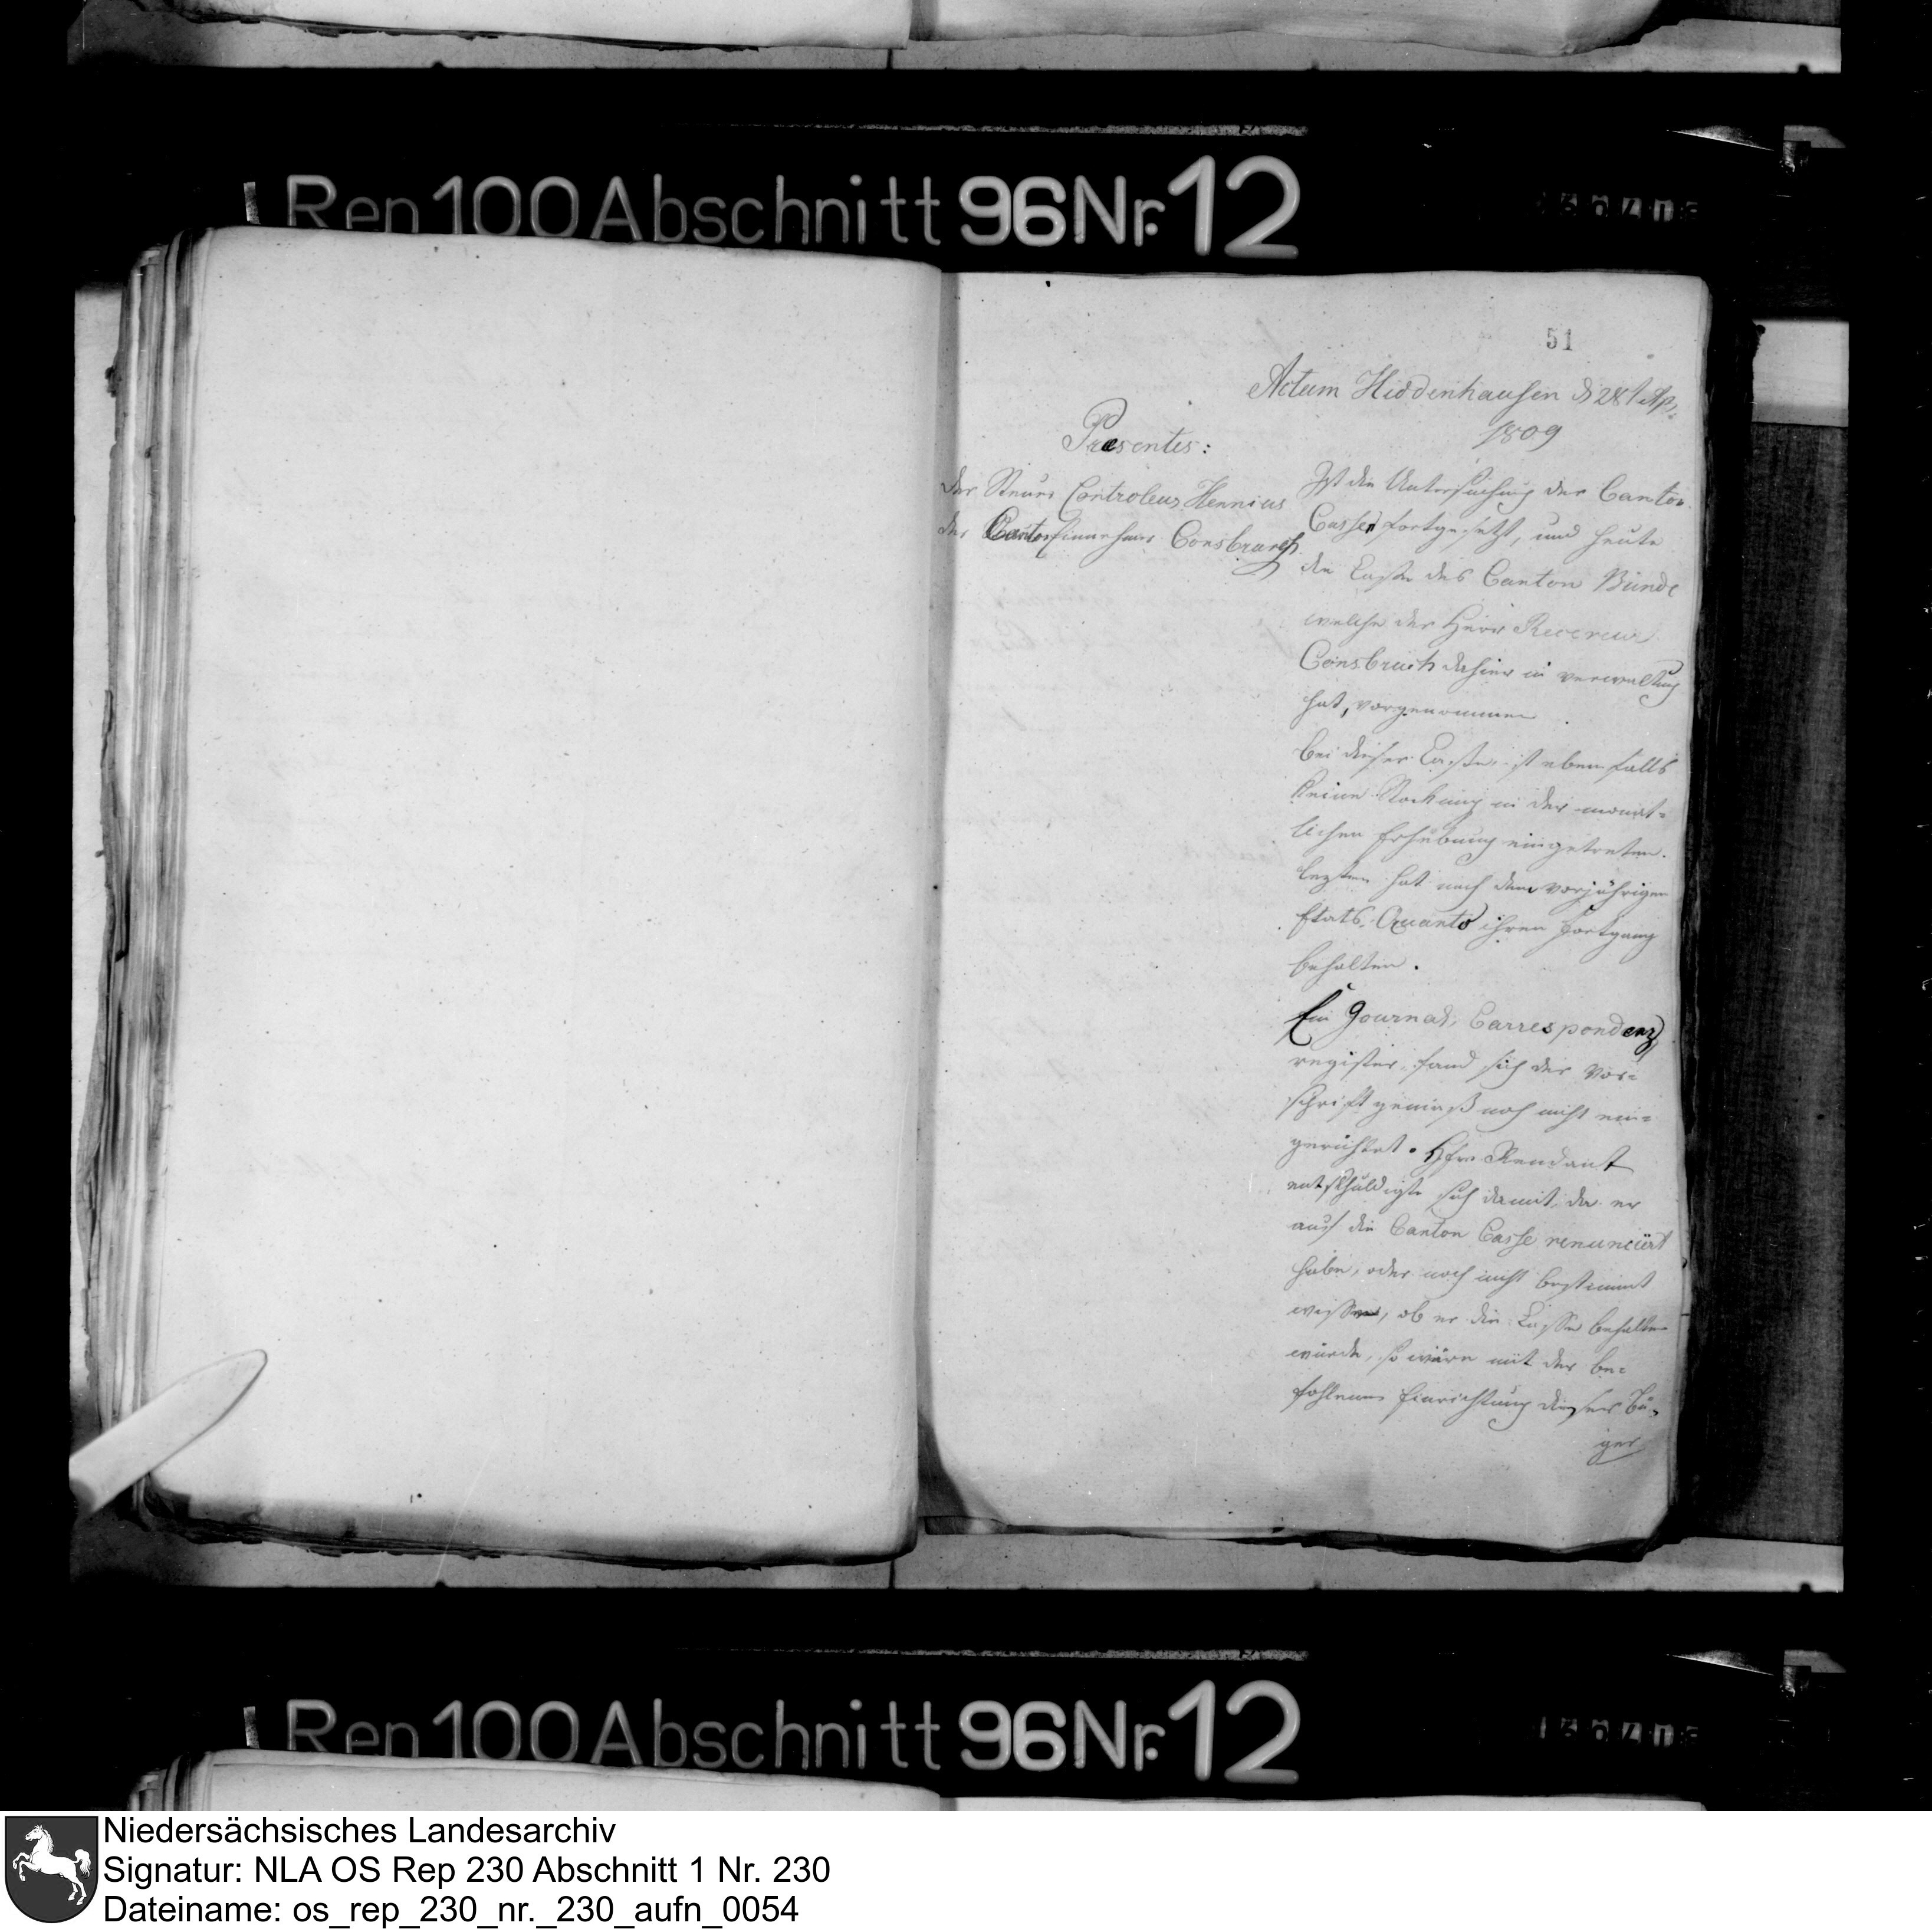 Rep 100 Abschnitt 96 Nr. 12
51
Actum Hiddenhausen d 28t Ap.
1809
Praesentes:
der Steuer Controleur Hennius
der Canton Einnehmer Consbruch
Ist die Untersuchung der Canton
Cassen fortgesetzt, und heute
die Casse des Canton Bünde
welche der Herr Receveur
Consbruch dahier in verwaltung
hat, vorgenommen
bei dieser Casse ist ebenfalls
keine Stockung in der monat=
lichen Erhebung eingetreten.
leztere hat nach dem vorjährigen
Etats Quanto ihren Fortgang
behalten.
Ein Journal, Correspondenz
register, fand sich der Vor=
schrift gemäß noch nicht ein=
gerichtet. Herr Rendant
entschuldigte sich damit, da er
auf die Canton Casse renunciirt
habe, oder noch nicht bestimmt
wisse, ob er die Casse behalten
würde, so wäre mit der be=
fohlenen Einrichtung dieser Bü=
cher
Rep 100 Abschnitt 96 Nr. 12
Niedersächsisches Landesarchiv
Signatur: NLA OS Rep 230 Abschnitt 1 Nr. 230
Dateiname: os_rep_230_nr._230_aufn_0054